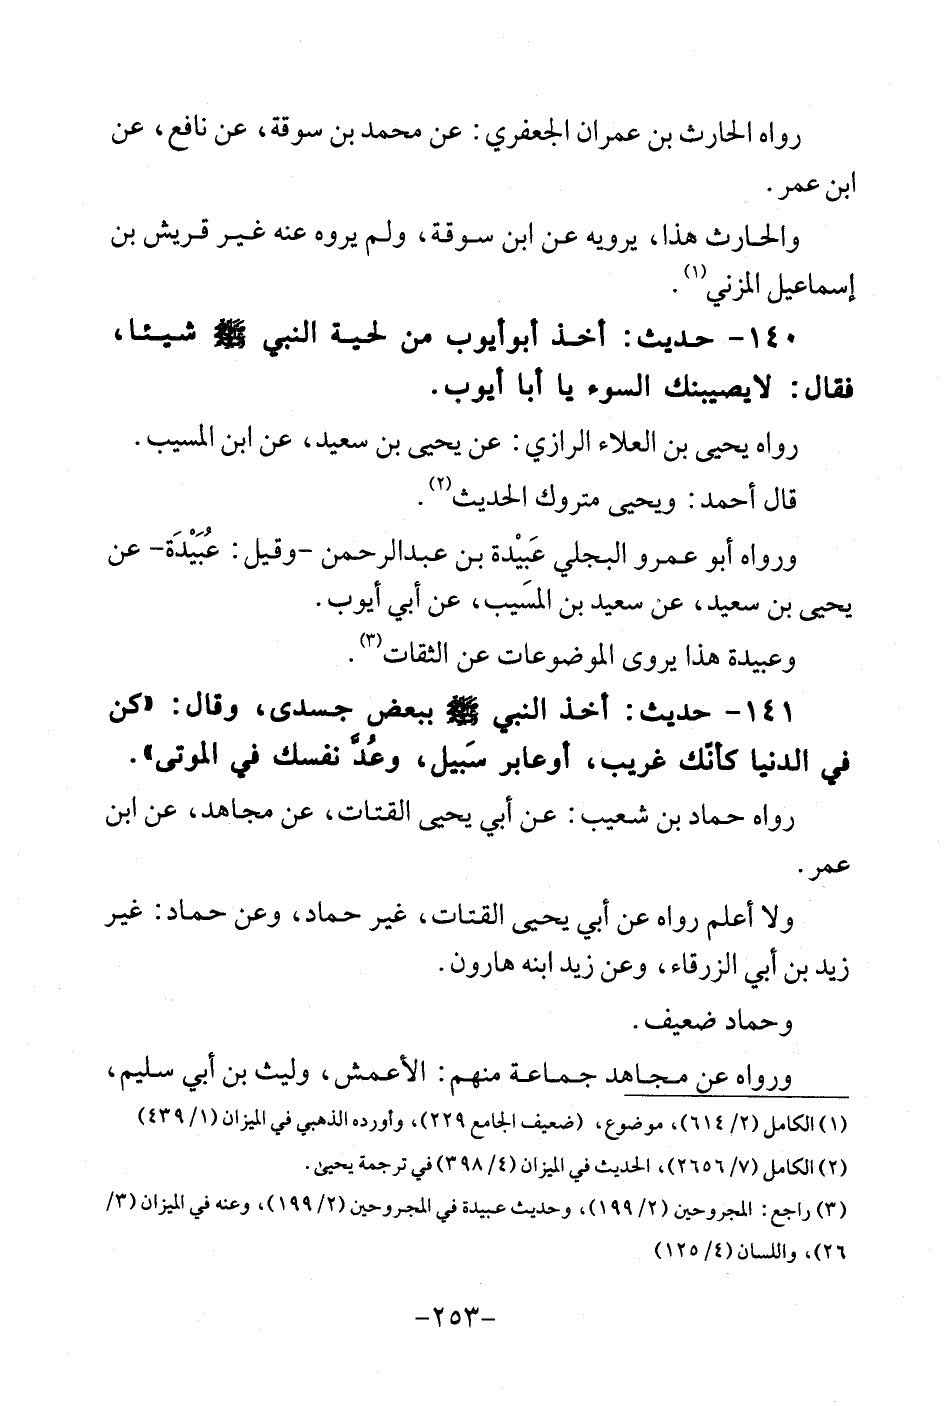 رواه الحارث بن عمران الجعفري : عن محمد بن سوقة، عن نافع، عن
ابن عمر .
والحارث هذا، يرويه عن ابن سوقة، ولم يروه عنه غير قريش بن
إسماعيل المزني(١) .
١٤٠- حديث : أخذ أبوأيوب من لحية النبي ﷺ شيئا،
فقال : لايصيبنك السوء يا أبا أيوب .
رواه يحيى بن العلاء الرازي : عن يحيى بن سعيد، عن ابن المسيب .
قال أحمد : ويحيى متروك الحديث(٢) .
ورواه أبو عمرو البجلي عَبيْدة بن عبدالرحمن -وقيل : عُبَيْدَة- عن
يحيى بن سعيد، عن سعيد بن المسَيب، عن أبي أيوب .
وعبيدة هذا يروى الموضوعات عن الثقات(٣) .
١٤١- حديث : أخذ النبي ﷺ ببعض جسدى، وقال : «كن
في الدنيا كأنّك غريب، أوعابر سَبيل، وعُدَّ نفسك في الموتى» .
رواه حماد بن شعيب : عن أبي يحيى القتات، عن مجاهد، عن ابن
عمر .
ولا أعلم رواه عن أبي يحيى القتات، غير حماد، وعن حماد : غير
زيد بن أبي الزرقاء، وعن زيد ابنه هارون .
وحماد ضعيف .
ورواه عن مجاهد جماعة منهم : الأعمش، وليث بن أبي سليم،
(١) الكامل (٢/ ٦١٤)، موضوع، (ضعيف الجامع ٢٢٩)، وأورده الذهبي في الميزان (١/ ٤٣٩)
(٢) الكامل (٧/ ٢٦٥٦)، الحديث في الميزان (٤/ ٣٩٨) في ترجمة يحيىٰ .
(٣) راجع : المجروحين (٢/ ١٩٩)، وحديث عبيدة في المجروحين (٢/ ١٩٩)، وعنه في الميزان (٣/
٢٦)، واللسان (٤/ ١٢٥)
-٢٥٣-